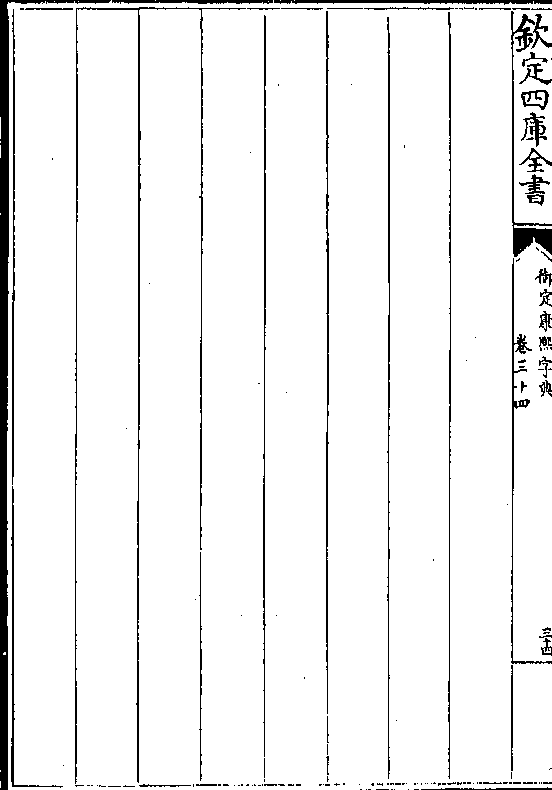 欽定四庫全書
御定康熙字典
卷三十四
三十四